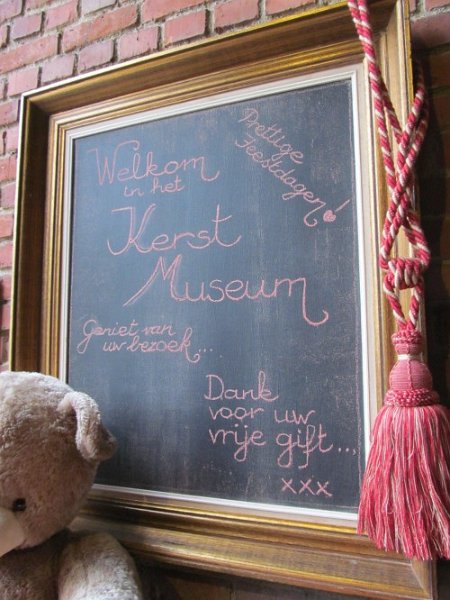 Prettige
Feestdagen!
Welkom
in het
Kerst
Museum
Geniet van
uw bezoek...
Dank
voor uw
vrije gift...,
xxx